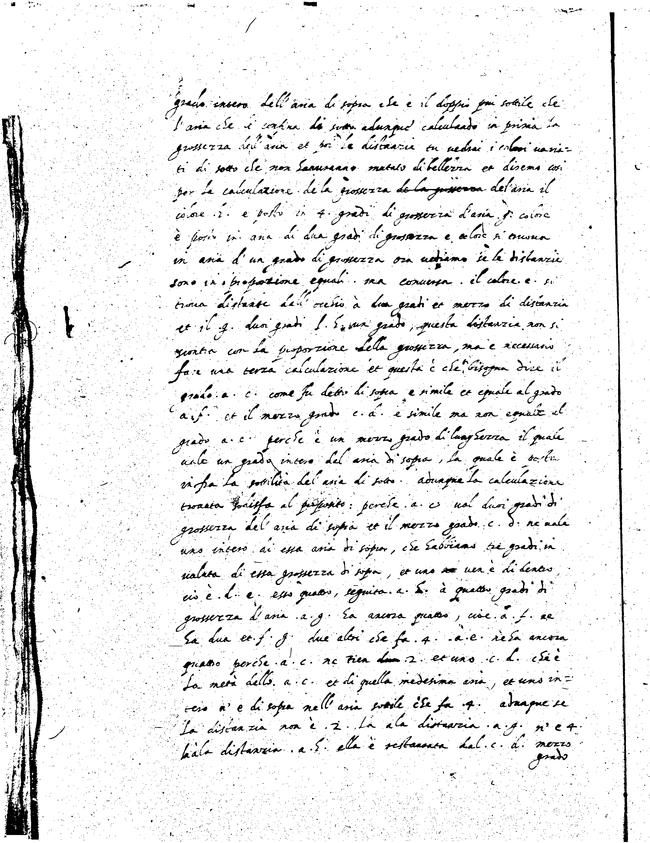 grado intero dell'aria di sopra che è il doppio piu sottile che
l'aria che li confina di sotto adunque calculando in prima la
grossezza dell'aria et poi le distanzia tu vedrai i colori varia-
ti di sotto che non haveranno mutato di bellezza et diremo cosi
per la calculazione de la grossezza de la grossezza del'aria il
colore .2. e posto in 4. gradi di grossezza d'aria .g. colore
è posto in aria di dua gradi di grossezza e colore si truova
in aria d'un grado di grossezza ora vediamo se la distanzie
sono in proporzione equali. ma conversa. il colore .e. si
truova distante dall'ochio à dua gradi et mezzo di distanzia
et il .g. duoi gradi l. h. un grado, questa distanzia non si
con la proporzione della grossezza, ma è necessario
fare una terza calculazione et questa è che bisogna dire il
grado .a.c. come fu detto di sopra e simile et equale al grado
.a.f. et il mezzo grado .c.d. è simile ma non equale al
grado .a.c. perche è un mezzo grado di lunghezza il quale
vale un grado intero del aria di sopra, la quale è
la sottilità del'aria di sotto. adunque la calculazione
trovata sodisfa al proposito: perche .a.c val duoi gradi di
grossezza del'aria di sopra et il mezzo grado .c.d. ne vale
uno intero di essa aria di sopra, che habbiamo tre gradi in
valuta di essa grossezza di sopra, et uno ven'è di dentro
cio è .d.e. esso quatto, seguita .a.h. à quattro gradi di
grossezza d'aria .a.g. ha ancora quattro, cioe .a.f. ne
ha dua et .f.g. due altri che fa .4. .a.e. ne ha ancora
quattro perche .a.c. ne tien dua 2. et uno .c.d. che è
la metà dello .a.c. et di quella medesima aria, et uno in=
tero n'è di sopra nell'aria sottile che fa .4. adunque se
la distanzia non è .2. la ala distanzia .a.g. n'è 4.
la distanzia .a.h. ella è restaurata dal .c.d. mezzo
grado